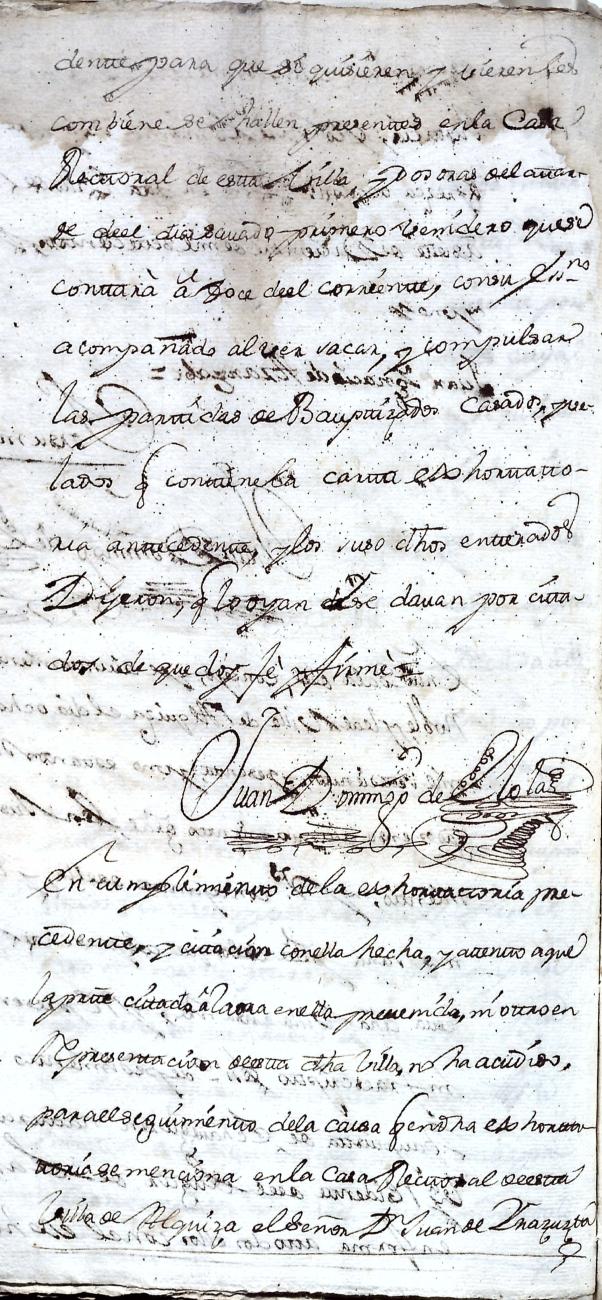 dente, para que si quisieren, y vieren les
combiene se hallen presentes en la Casa
Rectoral de esta Villa, y dos oras de la tar-
de deel dia savado primero venidero que se
contarà à Doce deel corriente, con su Ess.no
acompañado al ver sacar, y compulsar
las partidas de Bauptizados Casados, y ve-
lados q contiene la carta exhortato-
ria antecedente, y los suso dhos enterados
Dijeron, q lo oyan y se davan por cita-
dos de que doy fè, y firmè =
Juan Domingo de
En cumplimiento de la exhortatoria pre-
cedente, y citacion con ella hecha, y atento a que
la parte citada à la ora en ella prevenida, ni otro en
Representacion de esta dha Villa, no ha acudido,
para el seguimiento de la causa q en dha exhorta-
toria se menciona en la Casa Rectoral de esta
Villa de Alquiza el Señor Dn Juan de